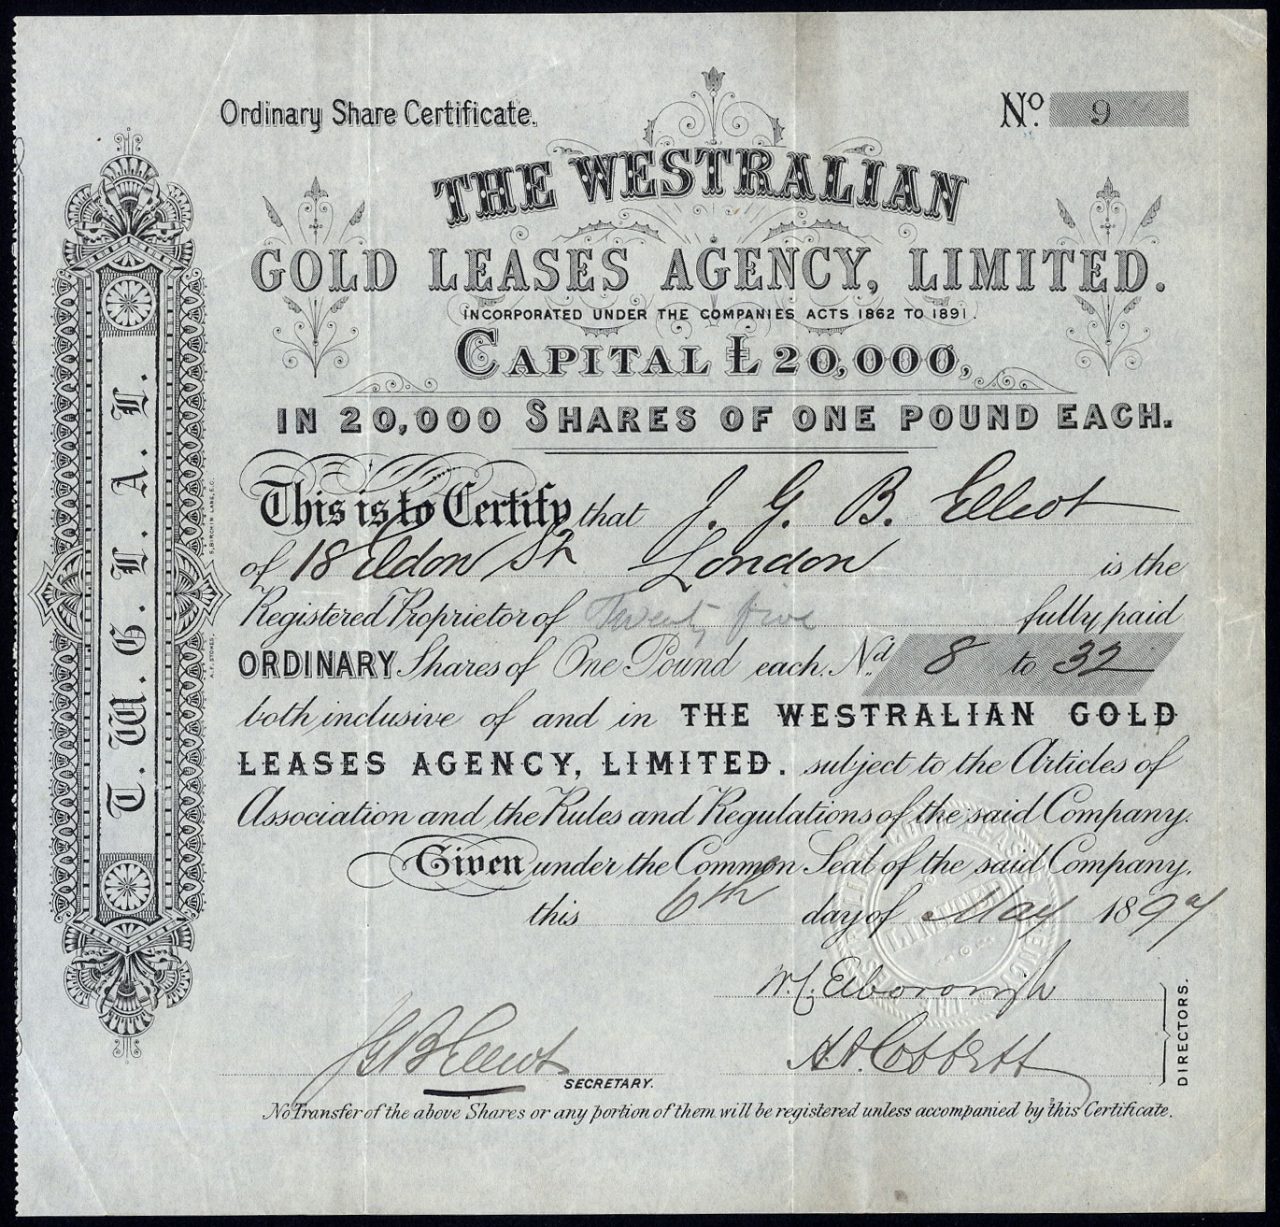 Ordinary Share Certificate.
No. 9
THE WESTRALIAN
GOLD LEASES AGENCY, LIMITED.
INCORPORATED UNDER THE COMPANIES ACTS 1862 TO 1891.
CAPITAL £20,000,
IN 20,000 SHARES OF ONE POUND EACH.
This is to Certify that J. G. B. Elliot
of 18 Eldon St London is the
Registered Proprietor of Twenty five fully paid
ORDINARY Shares of One Pound each. Nd 8 to 32
both inclusive of and in THE WESTRALIAN GOLD
LEASES AGENCY, LIMITED. subject to the Articles of
Association and the Rules and Regulations of the said Company.
Given under the Common Seal of the said Company,
this 6th day of May 1897
W. C. Elborough
A. A. Cobbett
DIRECTORS.
J G B Elliot
SECRETARY.
No Transfer of the above Shares or any portion of them will be registered unless accompanied by this Certificate.
T. W. G. L. A. L.